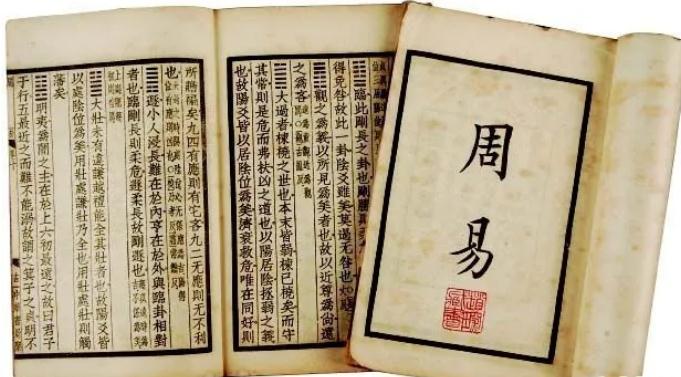 周易
䷒臨此剛長之卦也剛勝則柔
得免咎故此一卦陰爻雖美莫過无咎也
䷓觀之爲義以所見爲美者也故以近尊爲尚遠
之爲吝
䷛大過者棟橈之世也本末皆弱棟已橈矣而守
其常則是危而弗扶凶之道也以陽居陰拯弱之義
也故陽爻皆以居陰位爲美濟衰救危唯在同好則
所贍褊矣九四有應則有它吝九二无應則无不利
也
䷠遯小人浸長難在於內亨在於外與臨卦相對
者也臨剛長則柔危遯柔長故剛遯也
䷡大壯未有違謙越禮能全其壯者也故陽爻皆
以處陰位爲美用壯處謙壯乃全也用壯處壯則觸
藩矣
䷣明夷爲闇之主在於上六初最遠之故曰君子
于行五最近之而難不能溺故謂之箕子之貞明不